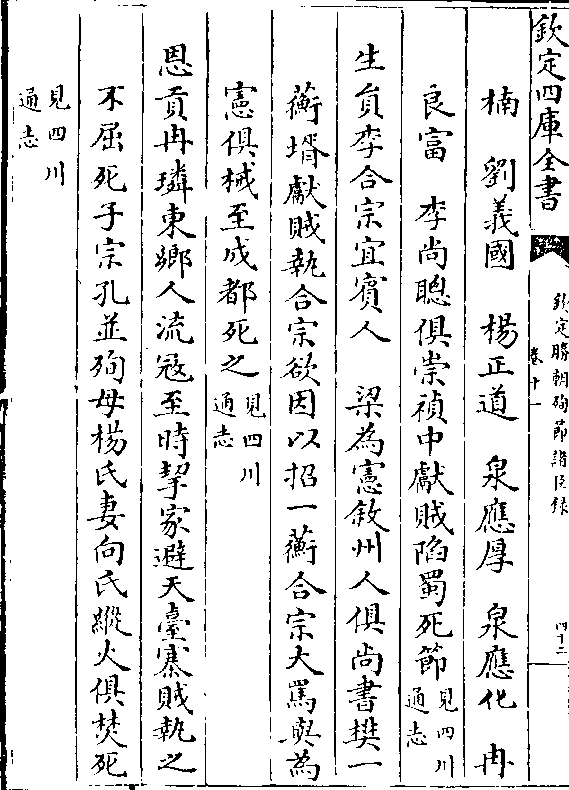 欽定四庫全書
欽定勝朝殉節諸臣錄
卷十一
四十二
楠　劉義國　楊正道　泉應厚　泉應化　冉
良富　李尚聰俱崇禎中獻賊陷蜀死節見四川通志
生員李合宗宜賓人　梁為憲敘州人俱尚書樊一
蘅壻獻賊執合宗欲因以招一蘅合宗大罵與為
憲俱械至成都死之見四川通志
恩貢冉璘東鄉人流寇至時挈家避天臺寨賊執之
不屈死子宗孔並殉母楊氏妻向氏縱火俱焚死
見四川通志